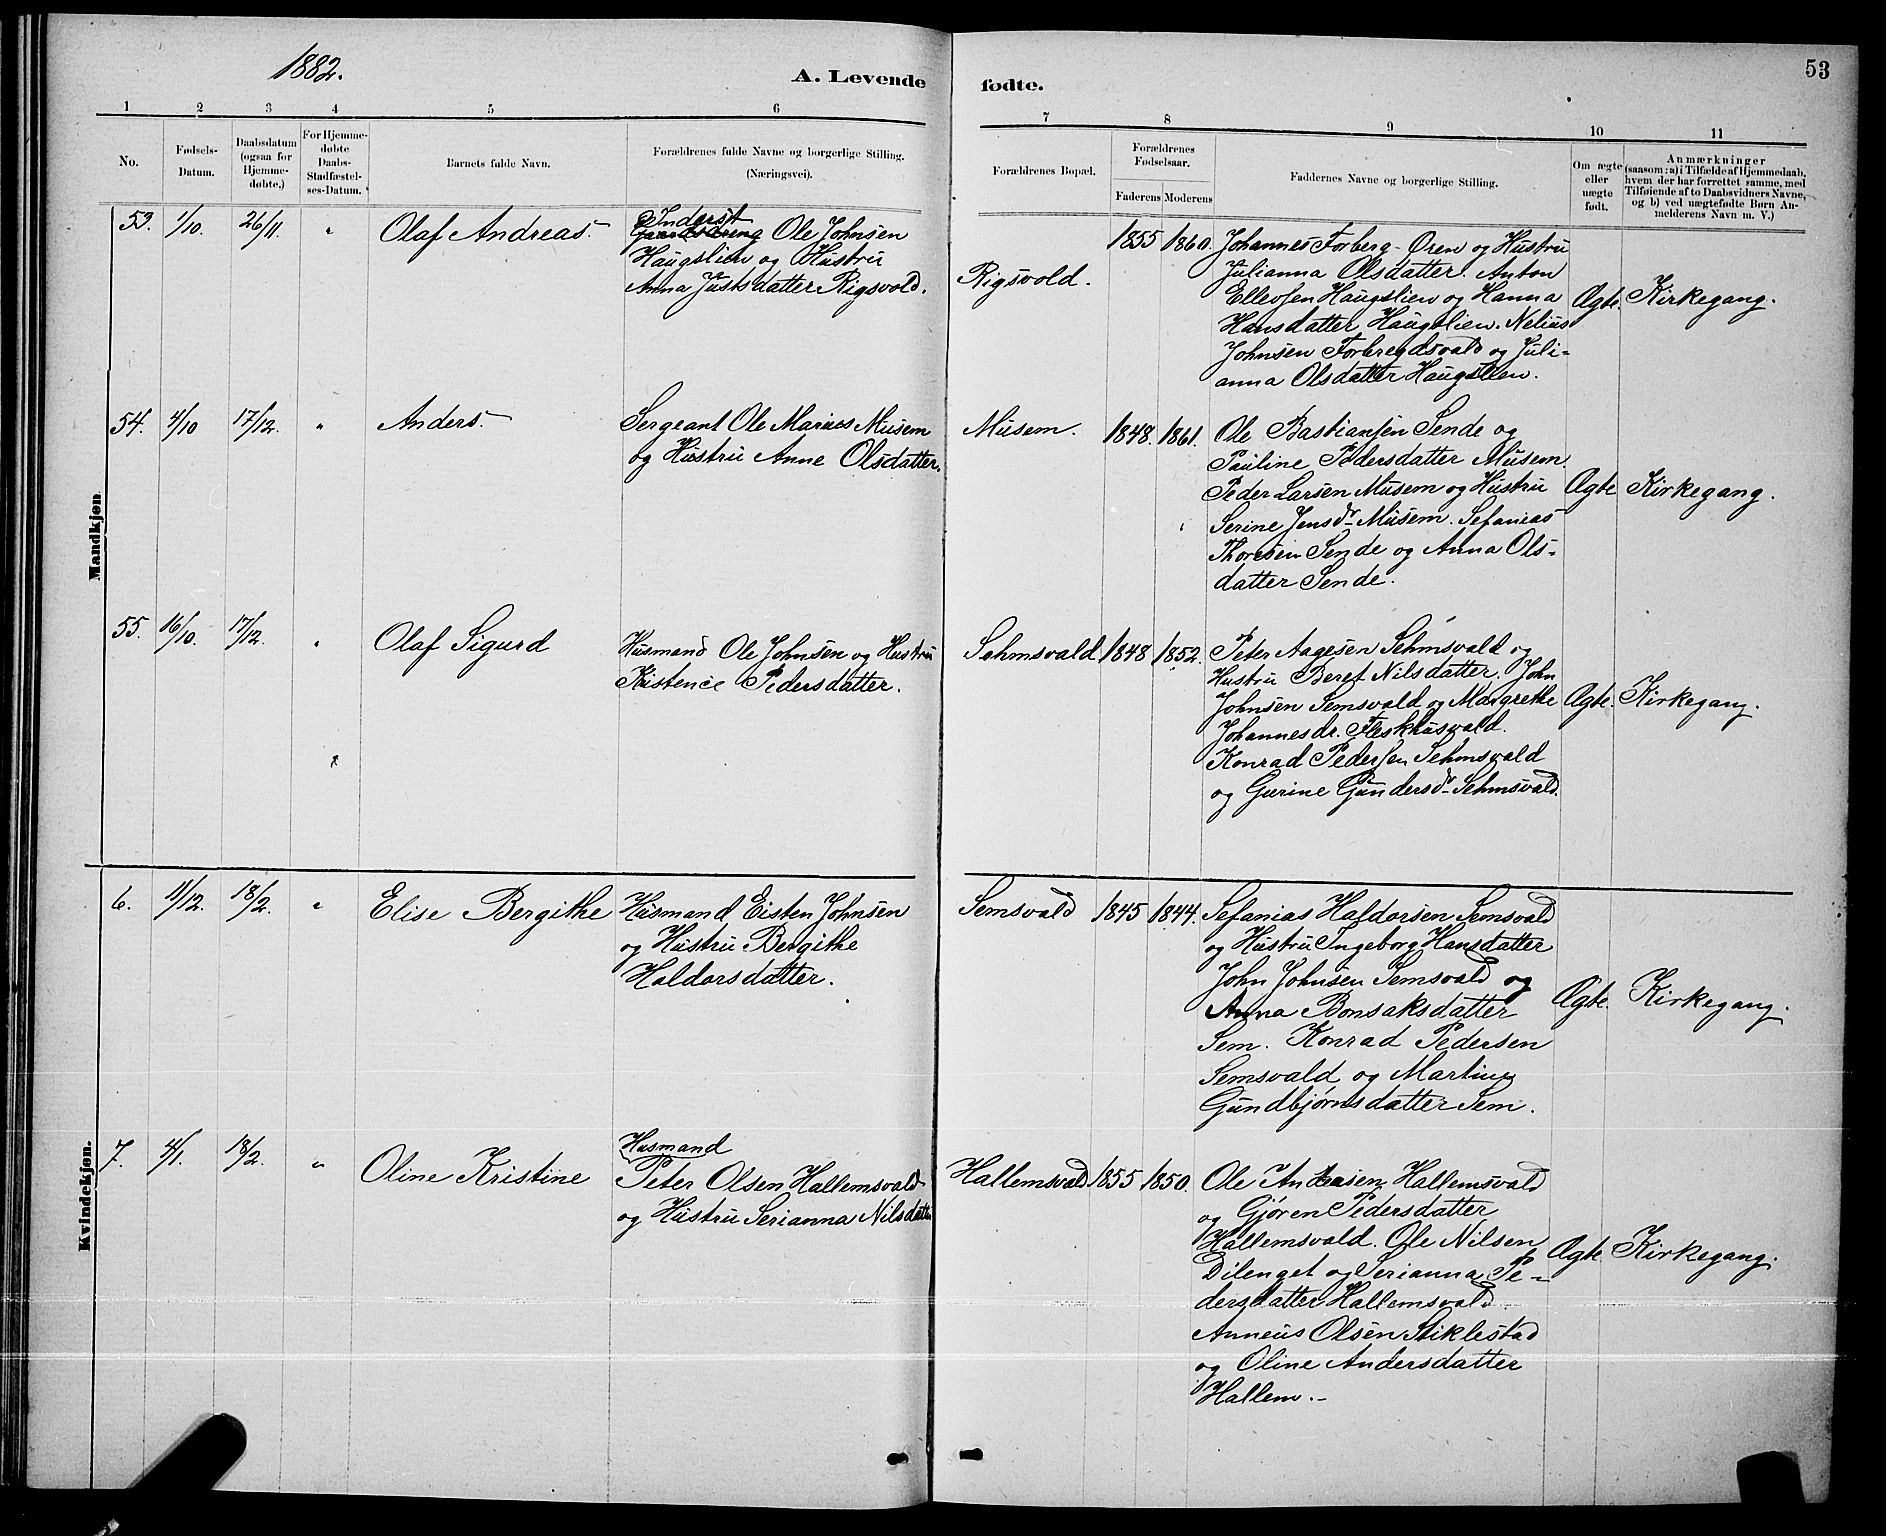 1882.
A. Levende fødte.
53
1 2 3 4 5 6 7 8 9 10 11
No.
Fødsels-
Datum.
Daabsdatum
(ogsaa for
Hjemme-
døbte.)
For Hjemme-
døbte
Daabs-
Stadfæstel-
ses-Datum.
Barnets fulde Navn.
Forældrenes fulde Navne og borgerlige Stilling.
(Næringsvei).
Forældrenes Bopæl.
Forældrenes
Fødselsaar.
Faderens Moderens
Faddernes Navne og borgerlige Stilling.
Om ægte
eller
uægte
født.
Anmærkninger
(saasom: a) i Tilfælde af Hjemmedaab,
hvem der har forrettet samme, med
Tilføiende af to Daabsvidners Navne,
og b) ved uægtefødte Børn An-
melderens Navn m. V.)
Mandkjøn.
53. 1/10 26/11 " Olaf Andreas.
Inderst
Ole Johnsen
Haugslien og Hustru
Anna Justsdatter Rigsvold.
Rigsvold.
1855 1860.
Johannes Forberg-Øren og Hustru
Julianna Olsdatter. Anton
Ellevsen Haugslien og Hanna
Hansdatter Haugslien. Nelius
Johnsen Forbregdsvald og Juli-
anna Olsdatter Haugslien.
Ægte. Kirkegang.
54. 4/10 17/12. " Anders.
Sergeant Ole Marius Musem
og Hustru Anne Olsdatter.
Musem.
1848. 1861.
Ole Bastiansen Sende og
Pauline Pedersdatter Musem.
Peder Larsen Musem og Hustru
Serine Jensdr Musem. Sefanias
Thoresen Sende og Anna Ols-
datter Sende.
Ægte Kirkegang.
55. 16/10. 17/12. " Olaf Sigurd
Husmand Ole Johnsen og Hustru
Kistence Pedersdatter.
Sehmsvald.
1848 1852.
Peter Aagesen Sehmsvald og
Hustru Beret Nilsdatter. John
Johnsen Semsvald og Margrethe
Johannesdr. Fleskhusvald.
Konrad Pedersen Sehmsvald
og Gurine Gundersdr Sehmsvald.
Ægte. Kirkegang.
Kvindekjøn.
6. 11/12. 18/2. " Elise Bergithe
Husmand Eisten Johnsen
og Hustru Bergithe
Haldorsdatter.
Semsvald
1845 1844.
Sefanias Haldorsen Semsvald
og Hustru Ingeborg Hansdatter
John Johnsen Semsvald og
Anna Bonsaksdatter
Sem. Konrad Pedersen
Semsvald og Martine
Gundbjørnsdatter Sem.
Ægte. Kirkegang.
7. 4/1. 18/2. " Oline Kristine
Husmand
Peter Olsen Hallemsvald
og Hustru Serianna Nilsdatter
Hallemsvald
1855 1850.
Ole Hallemsvald
og Gjøren Pedersdatter
Hallemsvald. Ole Nilsen
Dilenget og Serianna Pe-
dersdatter Hallemsvald.
Anneus Olsen Stiklestad
og Oline Andersdatter
Hallem.-
Ægte. Kirkegang.